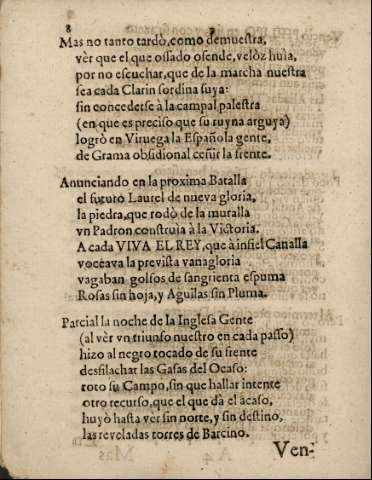 8
Mas no tanto tardò, como demuestra,
vèr que el que ossado ofende, velòz huìa,
por no escuchar, que de la marcha nuestra
sea cada Clarin sordina suya:
sin concederse à la campal palestra
(en que es preciso que su ruyna arguya)
logrò en Viruega la Española gente,
de Grama obsidional ceñir la frente.
Anunciando en la proxima Batalla
el futuro Laurel de nueva gloria,
la piedra, que rodò de la muralla
vn Padron construìa à la Victoria.
A cada VIVA EL REY, que à infiel Canalla
voceava la prevista vanagloria
vagaban golfos de sangrienta espuma
Rosas sin hoja, y Aguilas sin Pluma.
Parcial la noche de la Inglesa Gente
(al vèr vn triunfo nuestro en cada passo)
hizo al negro tocado de su frente
desfilachar las Gasas del Ocaso:
roto su Campo, sin que hallar intente
otro recurso, que el que dà el acaso,
huyò hasta ver sin norte, y sin destino,
las reveladas torres de Barcino.
Ven-